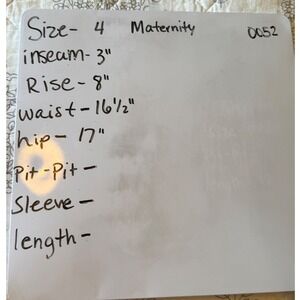 Size- 4 Maternity 0052
inseam- 3"
Rise- 8"
waist- 16 1/2"
hip- 17"
Pit-Pit-
Sleeve-
length-